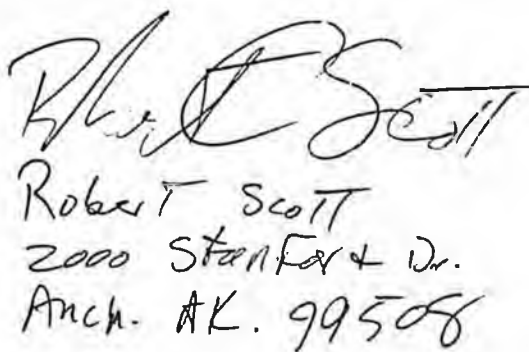 Robert Scott
Robert Scott
2000 Stanford Dr.
Anch. AK. 99508